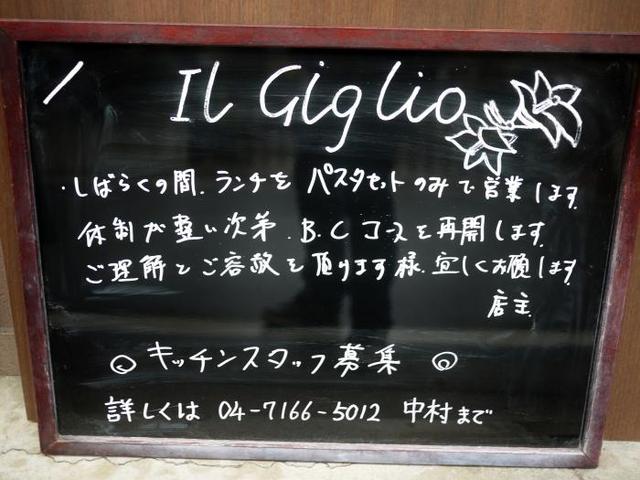 Il Giglio
・しばらくの間、ランチを パスタセットのみで営業します。
体制が整い次第、B.Cコースを再開します。
ご理解とご容赦を頂けます様、宜しくお願します。
店主
◎ キッチンスタッフ募集 ◎
詳しくは 04-7166-5012 中村まで